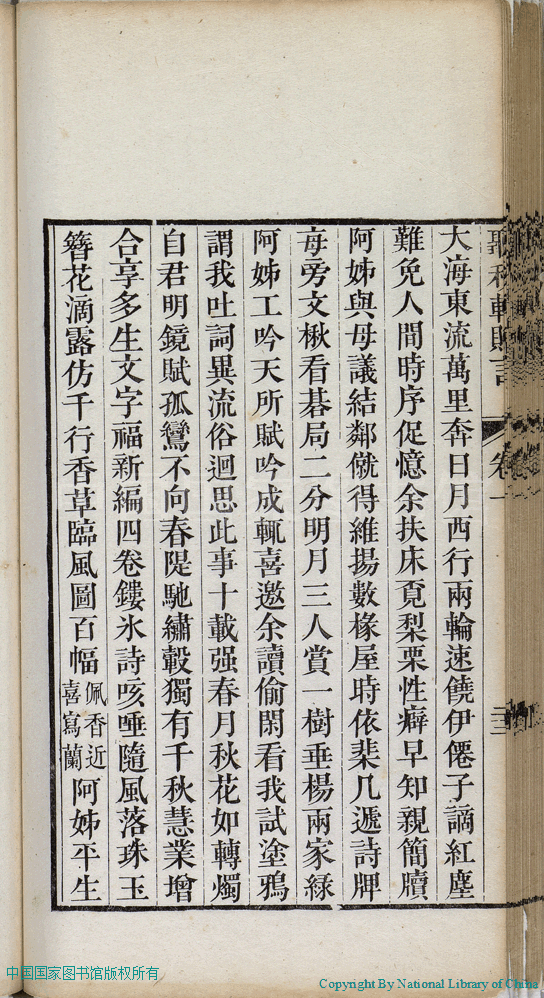 卷一
大海東流萬里奔日月西行兩輪速饒伊僊子謫紅塵
難免人間時序促憶余扶床覓梨栗性癖早知親簡牘
阿姊與母議結鄰僦得維揚數椽屋時依棐几遞詩牌
每旁文楸看碁局二分明月三人賞一樹垂楊兩家綠
阿姊工吟天所賦吟成輒喜邀余讀偷閑看我試塗鴉
謂我吐詞異流俗迴思此事十載强春月秋花如轉燭
自君明鏡賦孤鸞不向春隄馳繡轂獨有千秋慧業增
合享多生文字福新編四卷鏤氷詩咳唾隨風落珠玉
簪花滴露仿千行香草臨風圖百幅佩香近喜寫蘭阿姊平生
中国国家图书馆版权所有
Copyright By National Library of China